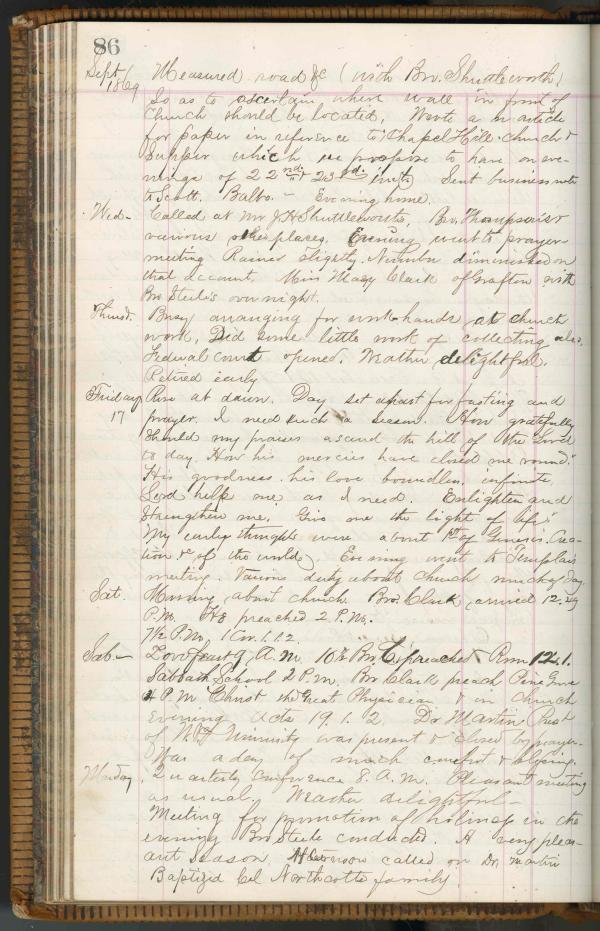 86
Sept / 1869 Measured road &c (with Bro. Shuttleworth)
So as to ascertain where wall in front of
Church should be located. Wrote an article
for paper in reference to Chapel Hill Church &
Supper which we propose to have on eve-
nings of 22nd & 23rd inst. Sent business note
to Scott. Balto. — Evening home.
Wed- Called at Mr J H Shuttleworths, Bro. Thompson's &
various other places. Evening went to prayer
meeting Rained slightly. Number diminished on
that account. Miss Mary Clark of Grafton with
Bro Steele's over night.
Thursd. Busy arranging for work-hands at church
work. Did some little work of collecting also.
Federal court opened. Weather delightful.
Retired early
Friday Rose at dawn. Day set apart for fasting and
17 prayer. I need such a season. How gratefully
should my praises ascend the hill of the Lord
to day. How his mercies have closed me round."
His goodness, his love boundless, infinite.
Lord help me as I need. Enlighten and
Strengthen me. Give me the light of life"
My early thoughts were about 1st of Genesis. Crea-
tion & of the world. Evening went to Templars
meeting. Various duty about Church much of day
Sat. Morning about church. Bro. Clark arrived 12.
P.M. He preached 2 P.M.
7½ P.M. 1 Cor. 1.12.
Sab.- Lovefeast 9 A.M. 10½ Bro C. preached Rom 12.1.
Sabbath School 2 P.M. Bro Clark preach Pine Grove
4 P M Christ the Great Physician & in Church
Evening Acts 19.1.2 Dr Martin Prest
of W.V. University was present & closed by prayer.
Was a day of much comfort & blessing.
Monday Quarterly Conference 8. A.M. Pleasant meeting
as usual. Weather delightful—
Meeting for promotion of holiness in the
evening Bro Steele conducted. A very pleas-
ant season. Afternoon called on Dr. Martin
Baptized Col Northcotts family